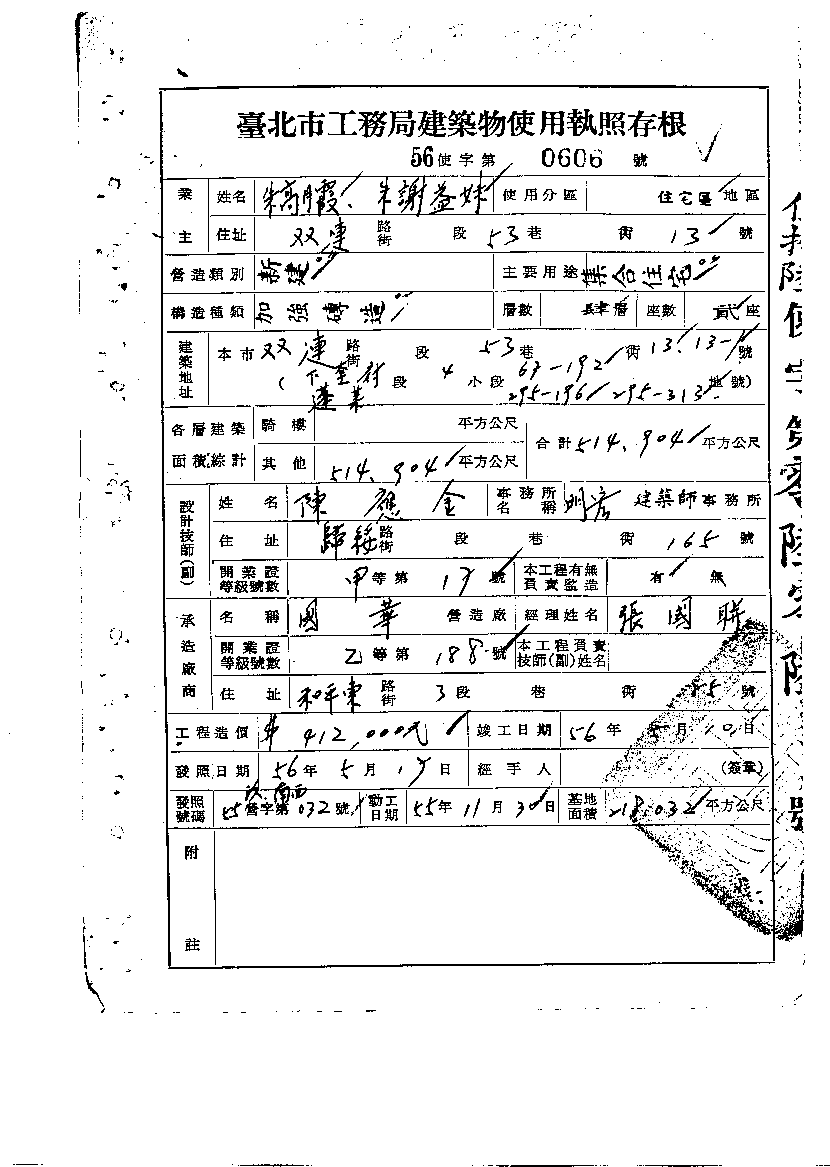 臺北市工務局建築物使用執照存根
56使字第 0606 號
業主 姓名 朱高月霞、朱謝益妹 使用分區 住宅區地區
住址 双連 路街 段 53巷 街 13 號
營造類別 新建 主要用途 集合住宅
構造種類 加強磚造 層數 肆層 座數 貳座
建築地址 本市双連路街 段 53巷 街13.13-1號
(下奎府段 4 小段 67-192 地號)
蓬萊 295-196 295-313
各層建築面積綜計 騎樓 平方公尺 合計514.904平方公尺
其他 514.904平方公尺
設計技師(副) 姓名 陳應金 事務所名稱 建築師事務所
住址 歸綏路街 段 巷 街 165 號
開業證等級號數 甲等第 號 本工程有無負責監造 有 無
承造廠商 名稱 國華 營造廠 經理姓名 張國聯
開業證等級號數 乙等第 188號 本工程負責技師(副)姓名
住址 和平東路街 3段 巷 街 號
工程造價 412,000元 竣工日期 56年 月10日
發照日期 56年5月 日 經手人 (簽章)
發照號碼 55營字第032號 動工日期 55年11月30日 基地面積 218.032平方公尺
附註
使字第零陸零陸號